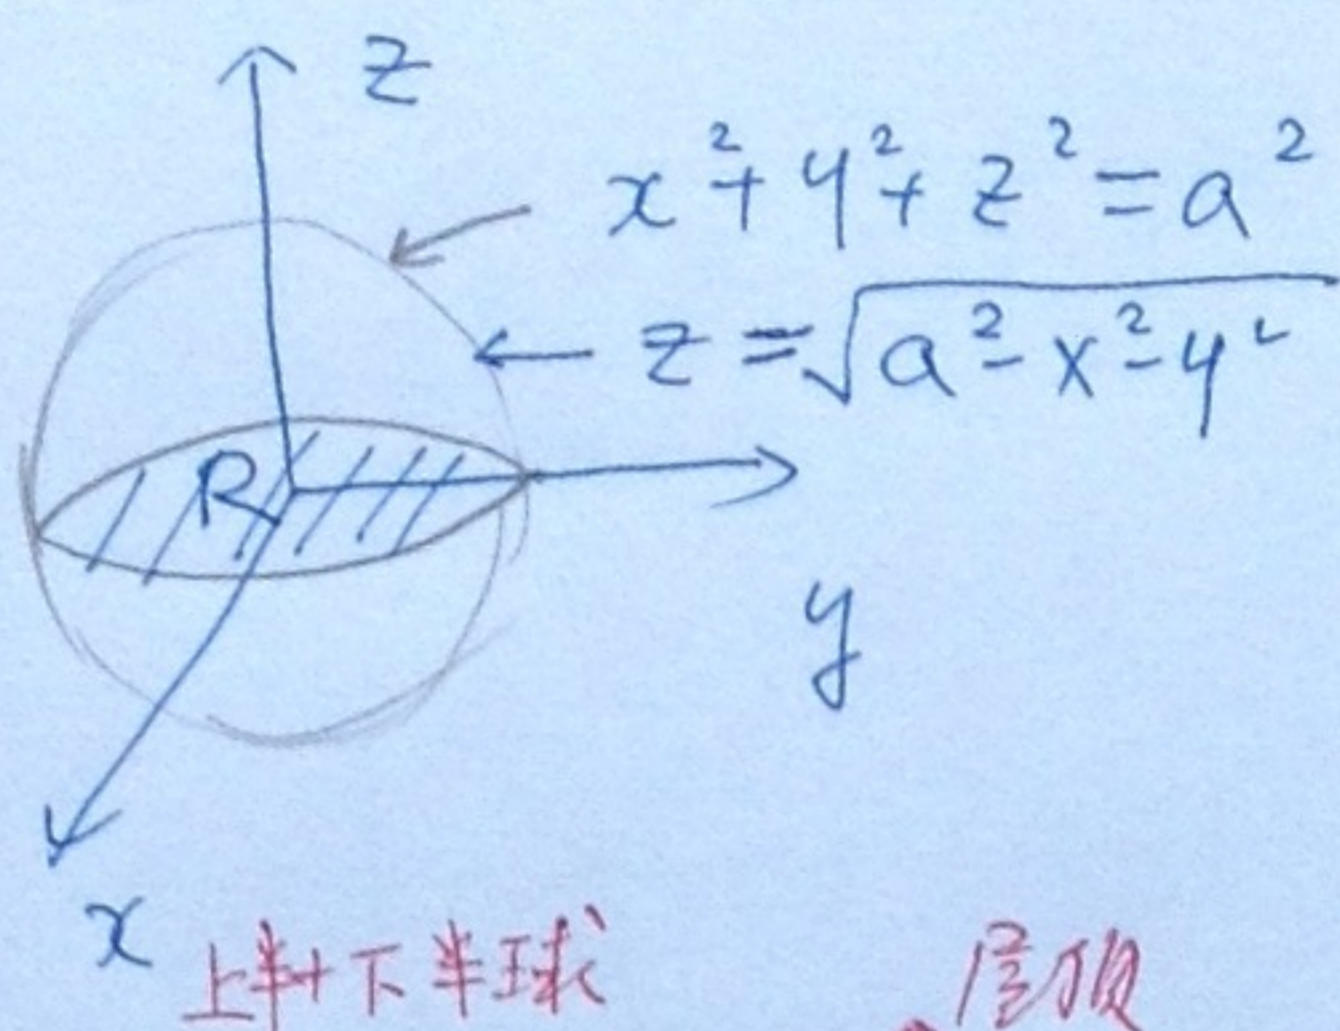 z
x²+y²+z²=a²
z=√(a²-x²-y²)
R
y
x
上半+下半球
屋顶